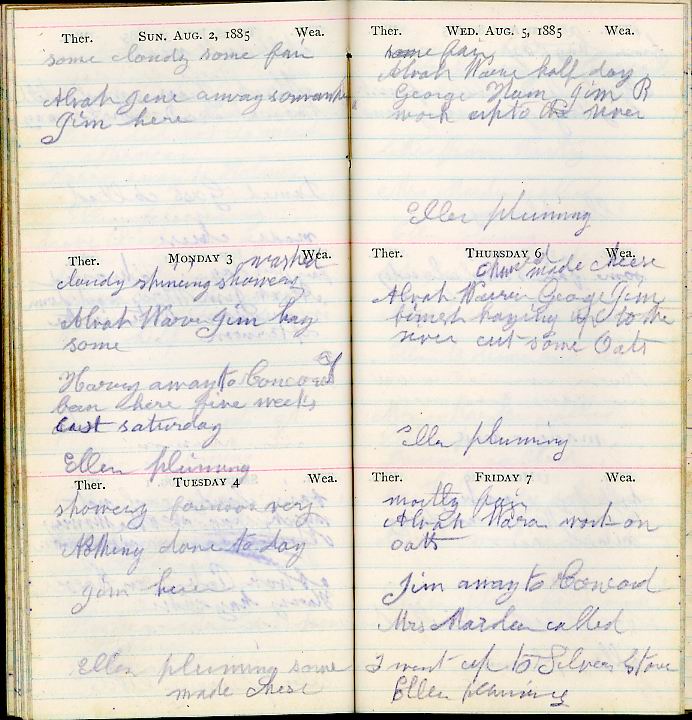 Ther. SUN. AUG. 2, 1885 Wea.
some cloudy some fair
Alvah gone away
Jim here
Ther. MONDAY 3 Wea.
washed
cloudy showers
Alvah Jim hay
some
Harvey away to Concord
been here five weeks
last saturday
Ellen
Ther. TUESDAY 4 Wea.
showery very
Nothing done to day
Jim here
Ellen some
made chese
Ther. WED. AUG. 5, 1885 Wea.
some fair
Alvah half day
George Jim B
work up to the river
Ellen
Ther. THURSDAY 6 Wea.
made cheese
Alvah George Jim
haying up to the
river cut some Oats
Ellen
Ther. FRIDAY 7 Wea.
mostly fair
Alvah work on
oats
Jim away to Concord
Mrs Marden called
I went up to Silver
Ellen